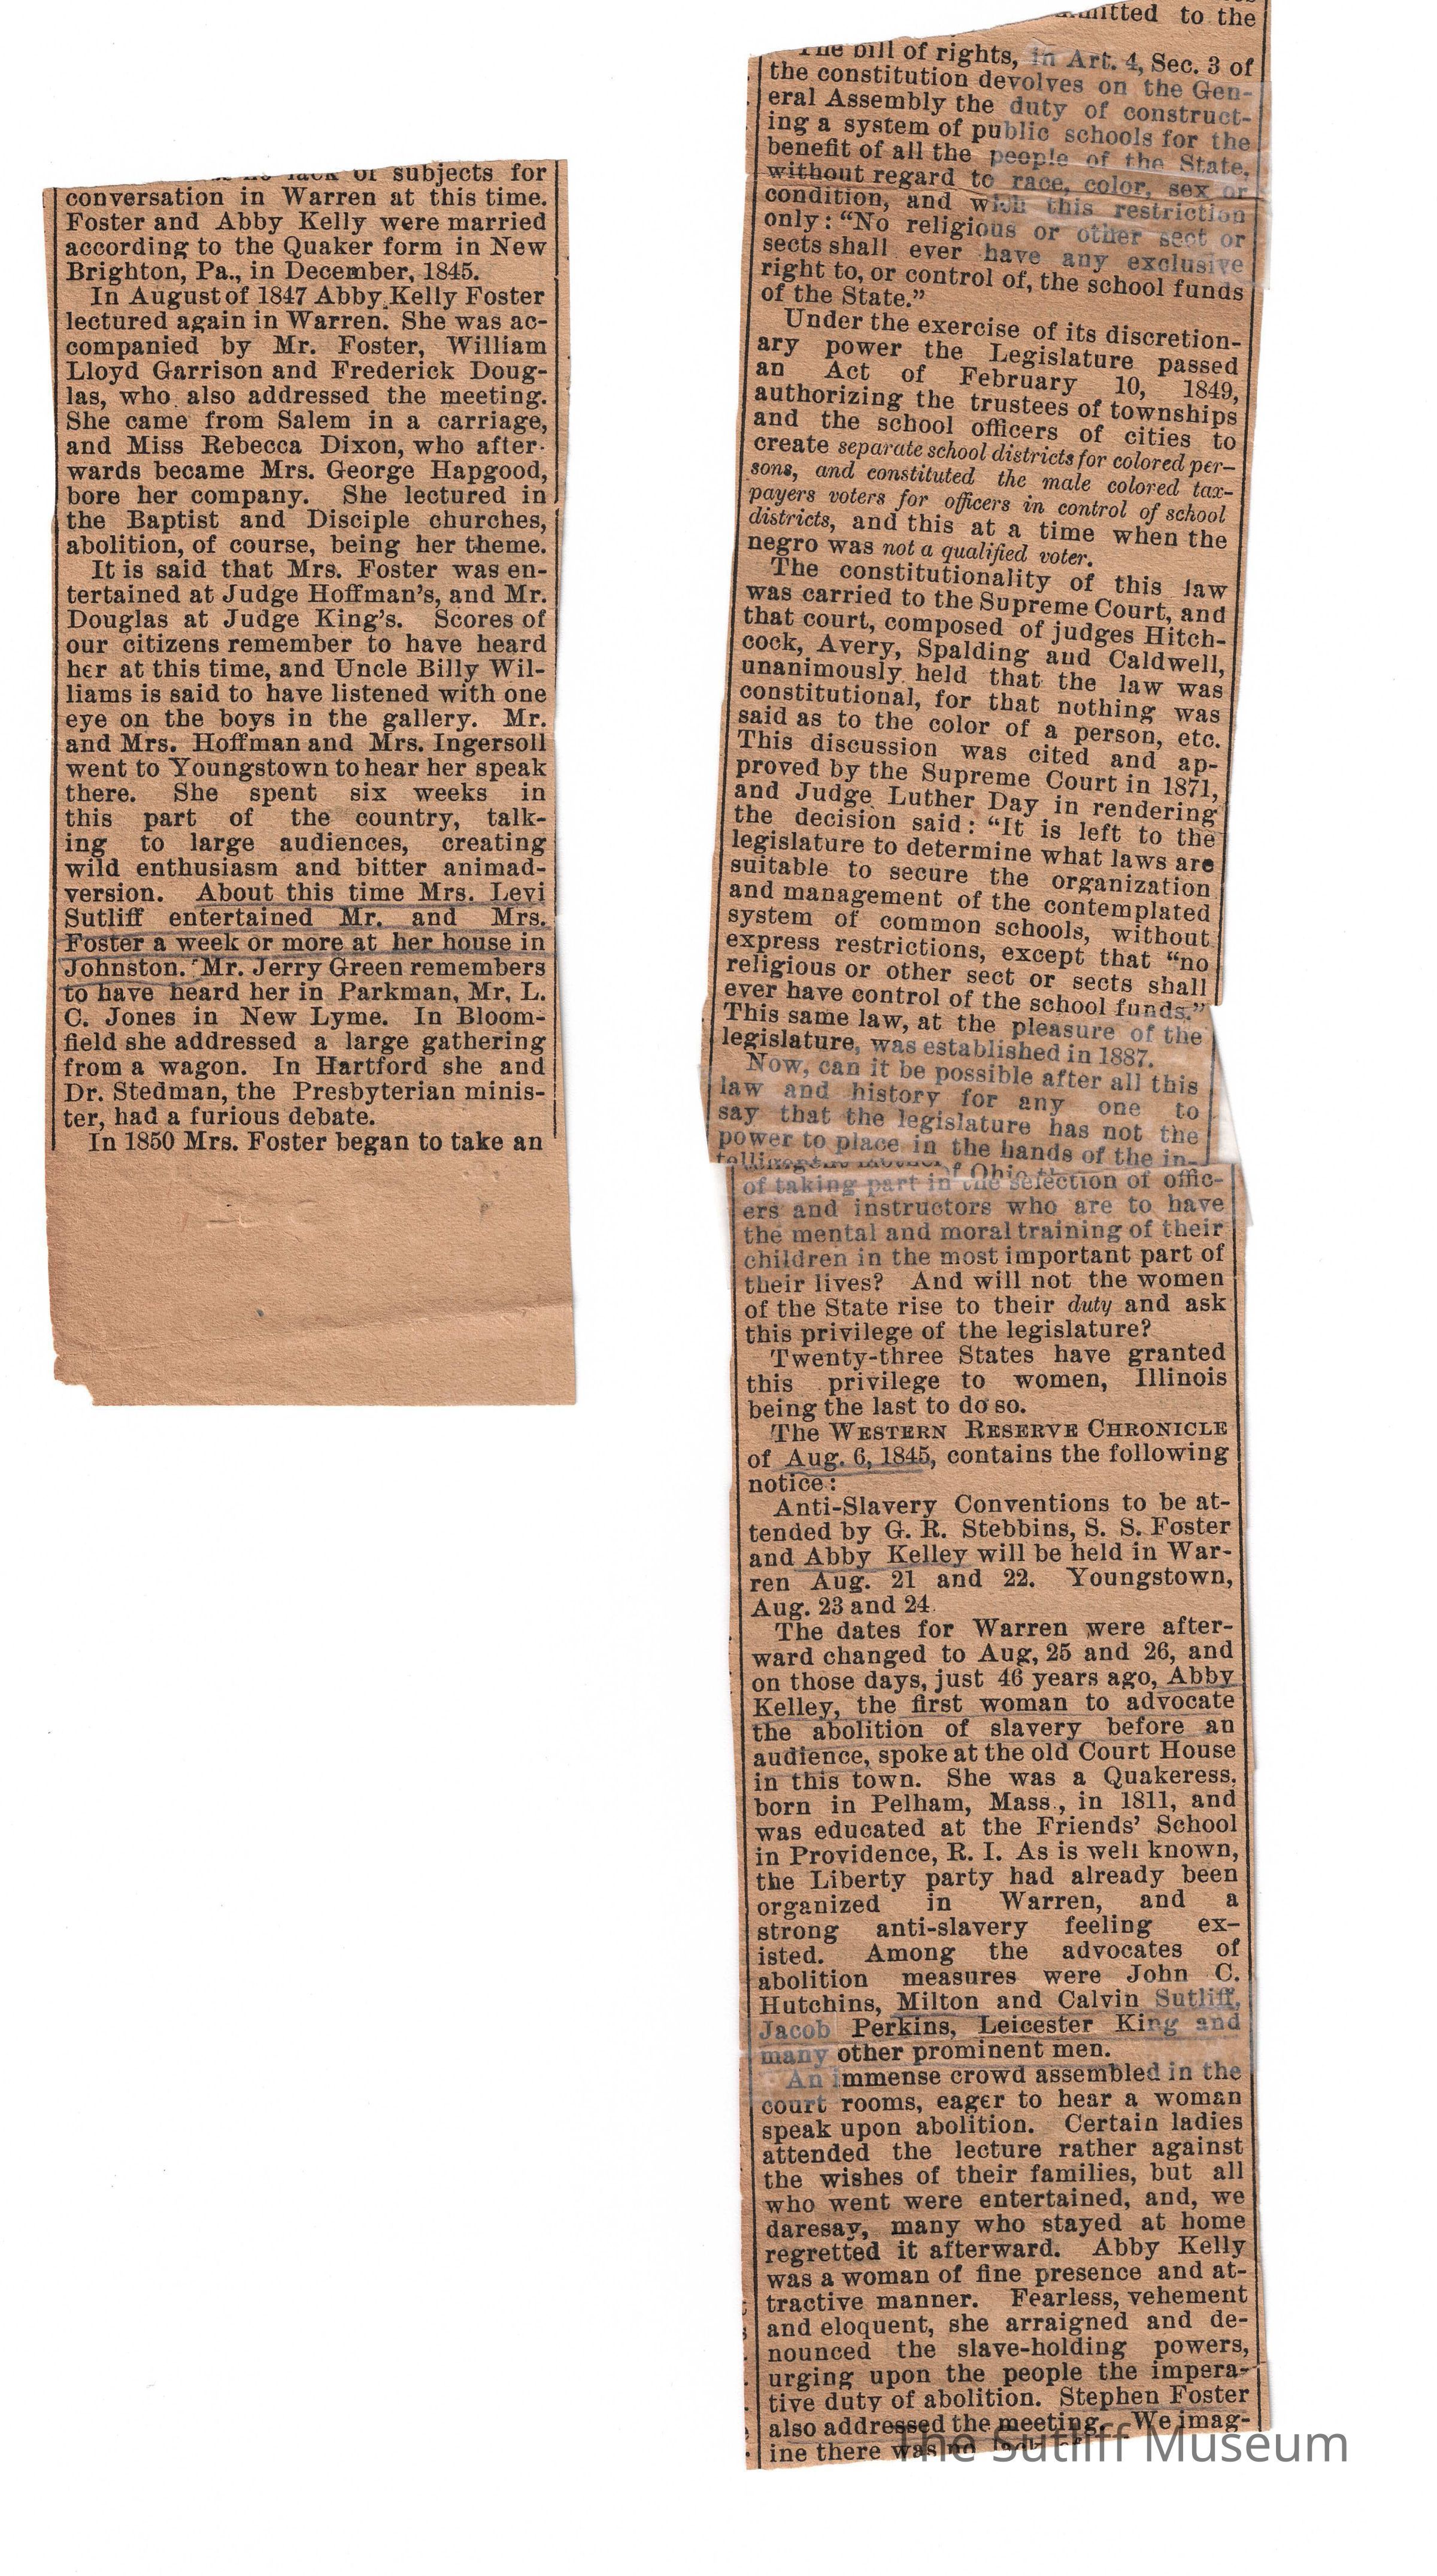 mitted to the
The bill of rights, in Art. 4, Sec. 3 of
the constitution devolves on the Gen-
eral Assembly the duty of construct-
ing a system of public schools for the
benefit of all the people of the State,
without regard to race, color, sex or
condition, and with this restriction
only: “No religious or other sect or
sects shall ever have any exclusive
right to, or control of, the school funds
of the State.”
Under the exercise of its discretion-
ary power the Legislature passed
an Act of February 10, 1849,
authorizing the trustees of townships
and the school officers of cities to
create separate school districts for colored per-
sons, and constituted the male colored tax-
payers voters for officers in control of school
districts, and this at a time when the
negro was not a qualified voter.
The constitutionality of this law
was carried to the Supreme Court, and
that court, composed of judges Hitch-
cock, Avery, Spalding and Caldwell,
unanimously held that the law was
constitutional, for that nothing was
said as to the color of a person, etc.
This discussion was cited and ap-
proved by the Supreme Court in 1871,
and Judge Luther Day in rendering
the decision said: “It is left to the
legislature to determine what laws are
suitable to secure the organization
and management of the contemplated
system of common schools, without
express restrictions, except that “no
religious or other sect or sects shall
ever have control of the school funds.”
This same law, at the pleasure of the
legislature, was established in 1887.
Now, can it be possible after all this
law and history for any one to
say that the legislature has not the
power to place in the hands of the in-
of Ohio
of taking part in the selection of offic-
ers and instructors who are to have
the mental and moral training of their
children in the most important part of
their lives? And will not the women
of the State rise to their duty and ask
this privilege of the legislature?
Twenty-three States have granted
this privilege to women, Illinois
being the last to do so.
The WESTERN RESERVE CHRONICLE
of Aug. 6, 1845, contains the following
notice:
Anti-Slavery Conventions to be at-
tended by G. R. Stebbins, S. S. Foster
and Abby Kelley will be held in War-
ren Aug. 21 and 22. Youngstown,
Aug. 23 and 24.
The dates for Warren were after-
ward changed to Aug, 25 and 26, and
on those days, just 46 years ago, Abby
Kelley, the first woman to advocate
the abolition of slavery before an
audience, spoke at the old Court House
in this town. She was a Quakeress,
born in Pelham, Mass., in 1811, and
was educated at the Friends’ School
in Providence, R. I. As is well known,
the Liberty party had already been
organized in Warren, and a
strong anti-slavery feeling ex-
isted. Among the advocates of
abolition measures were John C.
Hutchins, Milton and Calvin Sutliff,
Jacob Perkins, Leicester King and
many other prominent men.
An immense crowd assembled in the
court rooms, eager to hear a woman
speak upon abolition. Certain ladies
attended the lecture rather against
the wishes of their families, but all
who went were entertained, and, we
daresay, many who stayed at home
regretted it afterward. Abby Kelly
was a woman of fine presence and at-
tractive manner. Fearless, vehement
and eloquent, she arraigned and de-
nounced the slave-holding powers,
urging upon the people the impera-
tive duty of abolition. Stephen Foster
also addressed the meeting. We imag-
ine there was no lack of
lack of subjects for
conversation in Warren at this time.
Foster and Abby Kelly were married
according to the Quaker form in New
Brighton, Pa., in December, 1845.
In August of 1847 Abby Kelly Foster
lectured again in Warren. She was ac-
companied by Mr. Foster, William
Lloyd Garrison and Frederick Doug-
las, who also addressed the meeting.
She came from Salem in a carriage,
and Miss Rebecca Dixon, who after-
wards became Mrs. George Hapgood,
bore her company. She lectured in
the Baptist and Disciple churches,
abolition, of course, being her theme.
It is said that Mrs. Foster was en-
tertained at Judge Hoffman’s, and Mr.
Douglas at Judge King’s. Scores of
our citizens remember to have heard
her at this time, and Uncle Billy Wil-
liams is said to have listened with one
eye on the boys in the gallery. Mr.
and Mrs. Hoffman and Mrs. Ingersoll
went to Youngstown to hear her speak
there. She spent six weeks in
this part of the country, talk-
ing to large audiences, creating
wild enthusiasm and bitter animad-
version. About this time Mrs. Levi
Sutliff entertained Mr. and Mrs.
Foster a week or more at her house in
Johnston. Mr. Jerry Green remembers
to have heard her in Parkman, Mr, L.
C. Jones in New Lyme. In Bloom-
field she addressed a large gathering
from a wagon. In Hartford she and
Dr. Stedman, the Presbyterian minis-
ter, had a furious debate.
In 1850 Mrs. Foster began to take an
The Sutliff Museum